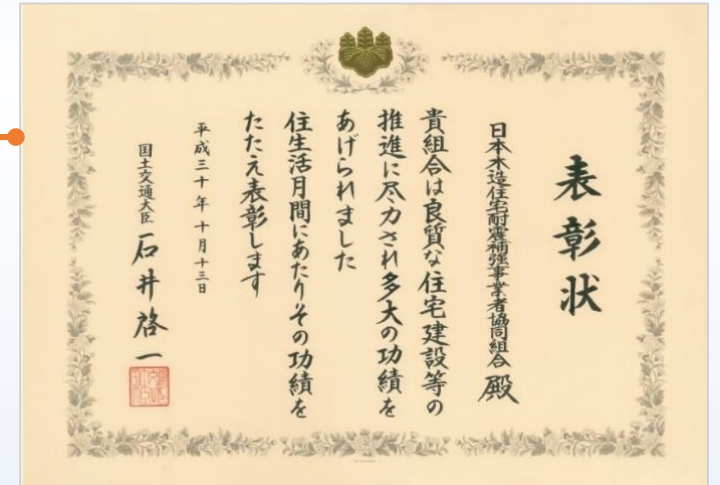 表彰状
日本木造住宅耐震補強事業者協同組合 殿
貴組合は良質な住宅建設等の
推進に尽力され多大の功績を
あげられました
住生活月間にあたりその功績を
たたえ表彰します
平成三十年十月十三日
国土交通大臣 石井啓一